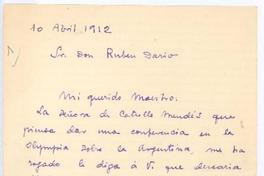 10 Abril 1912
Sr. Don Ruben Dario
Mi querido Maestro:
La Señora de Catulle Mendés que
piensa dar una conferencia en la
Olympia sobre la Argentina, me ha
rogado le diga á V. que desearia